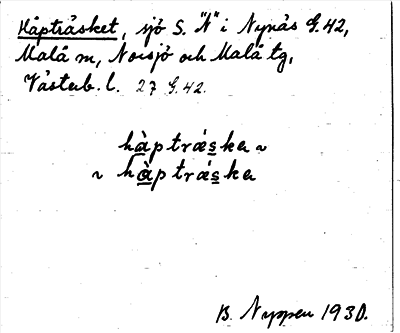 Håpträsket, sjö S. "N" i Nynäs G.42,
Malå sn, Norsjö och Malå tg,
Västerb. l. 27 G.42.
hàptrǽska ~
~ hàptrǽska
B. Nyppen 1930.